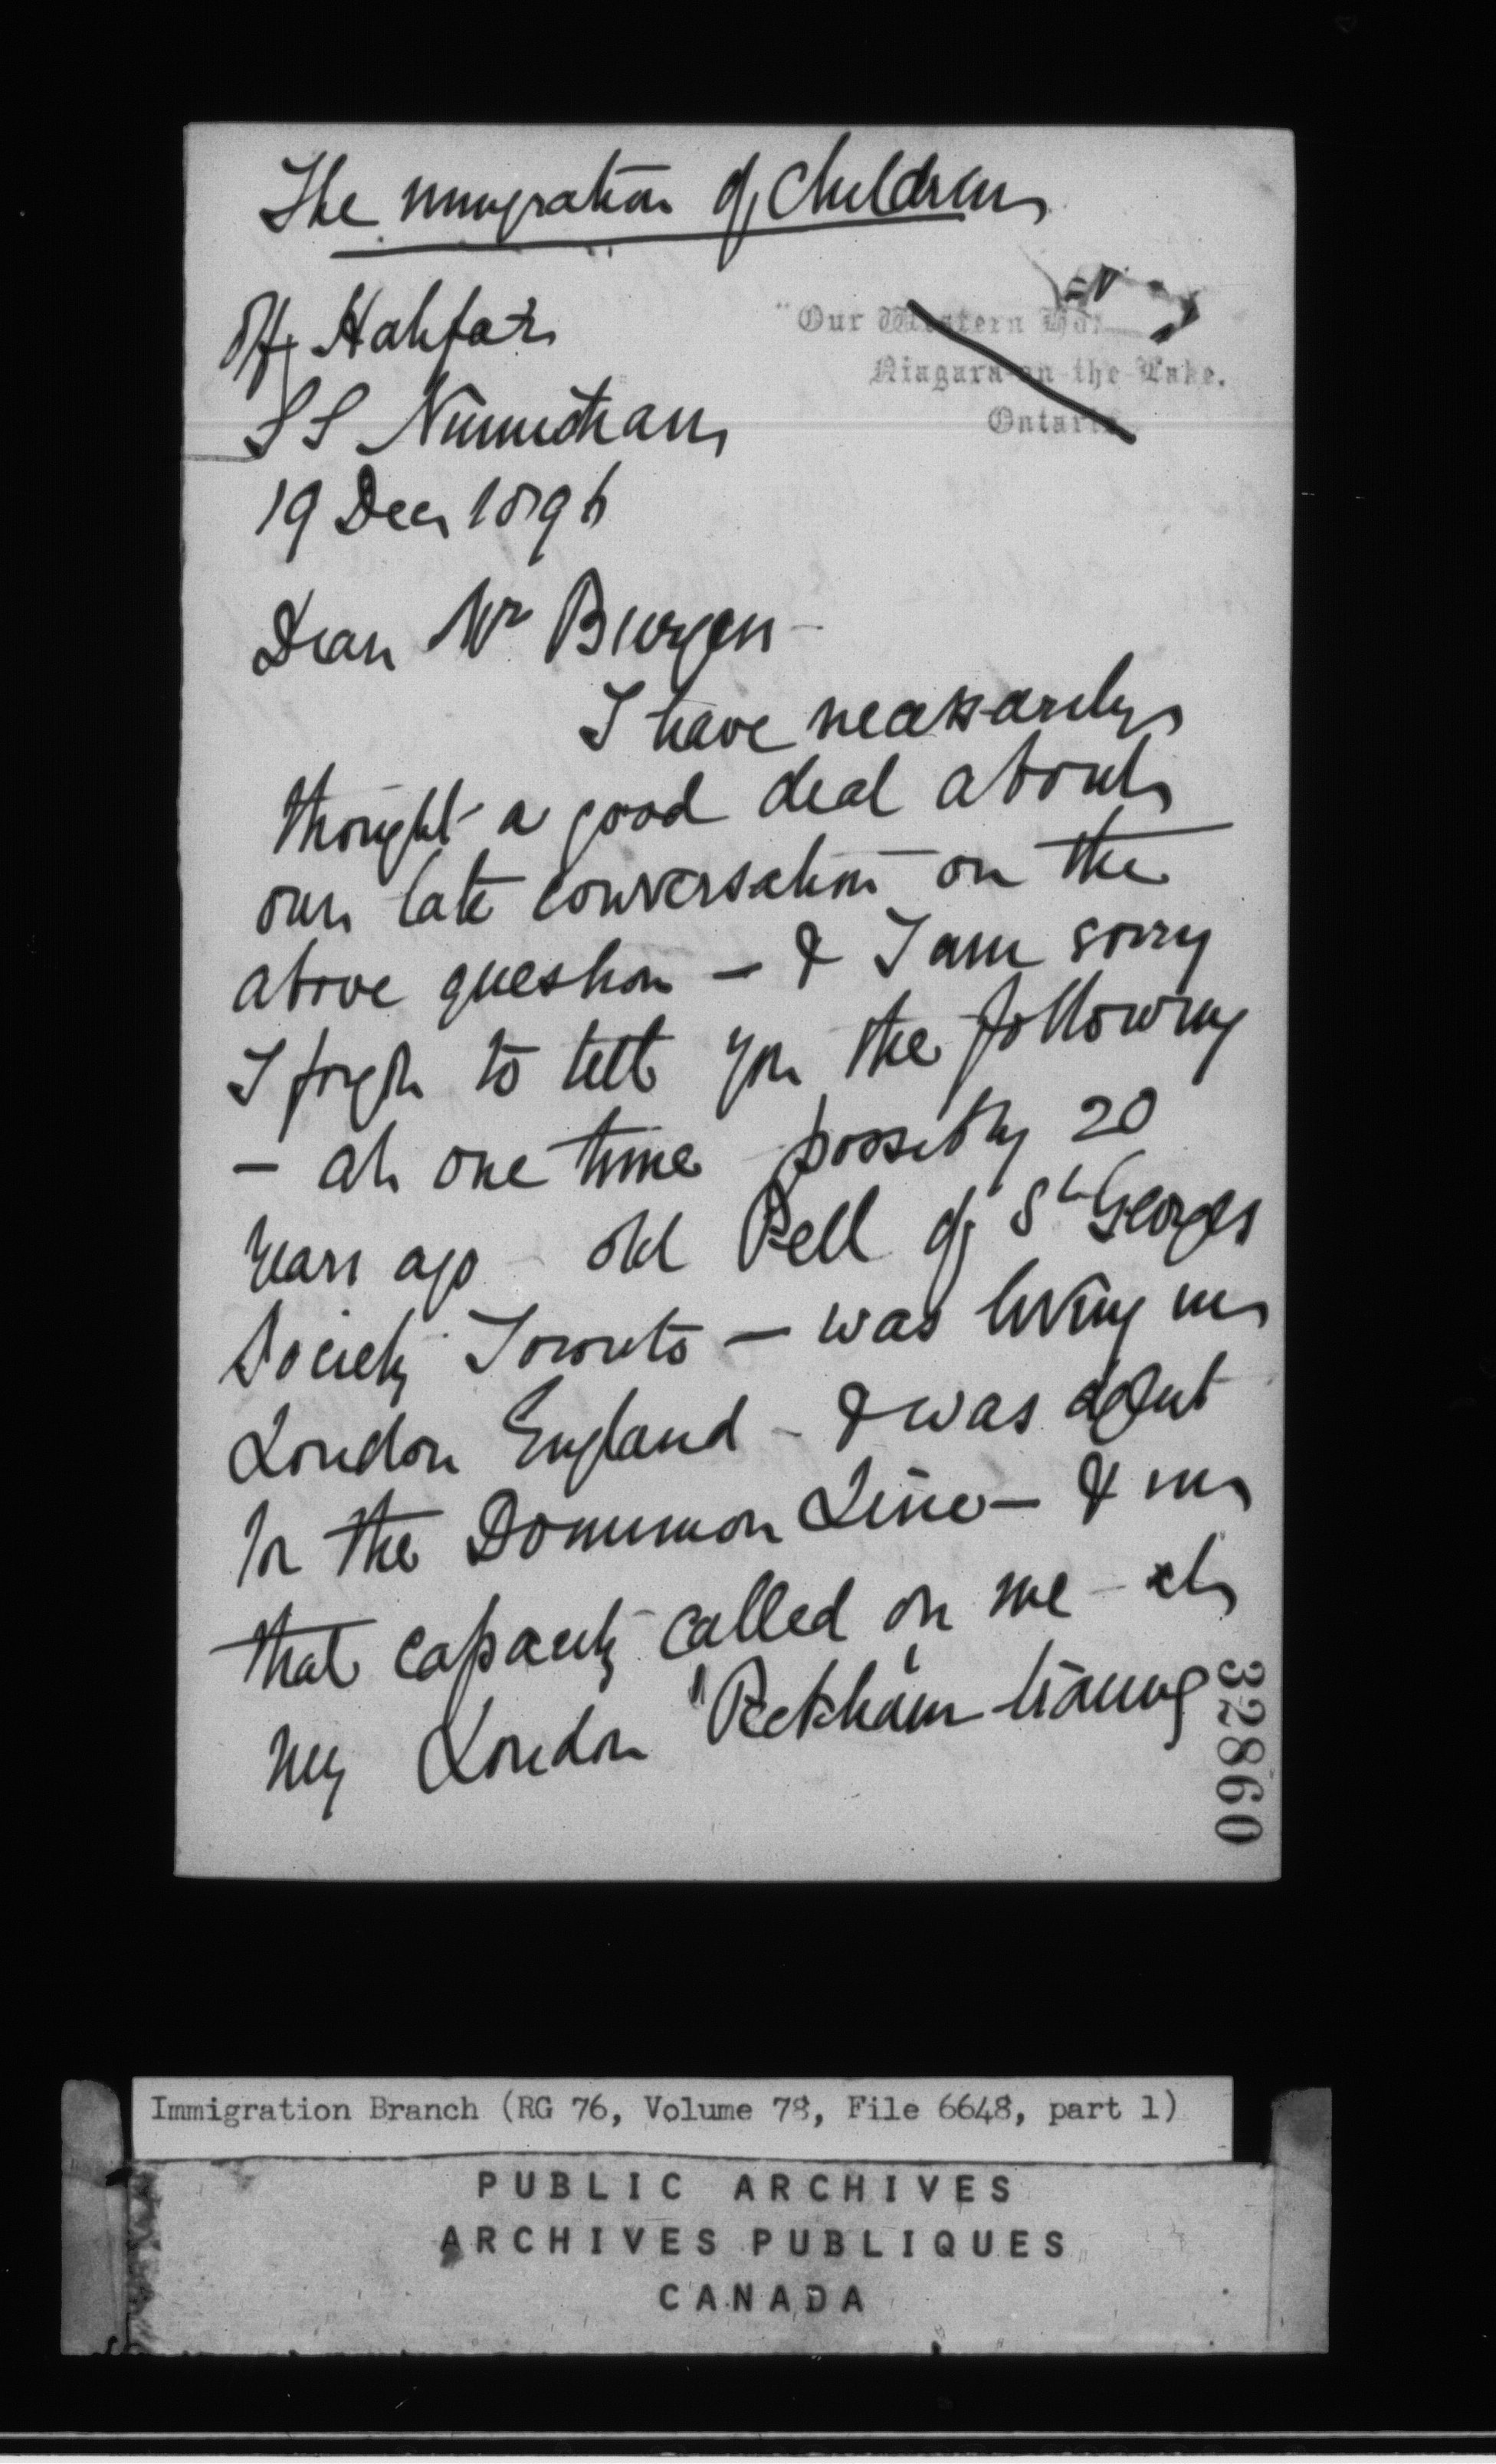 The immigration of Children
Off Halifax
"Our Western Ho
Niagara on the Lake.
Ontario
SS Numidian
19 Decr 1896
Dear Mr Burgess -
I have necessarily
thought a good deal about
our late conversation on the
above question - & I am sorry
I forgot to tell you the following
- at one time possibly 20
years ago - old Pell of St Georges
Society Toronto - was living in
London England - & was agent
for the Dominion Line - & in
that capacity called on me - at
my London "Peckham training
32860
Immigration Branch (RG 76, Volume 78, File 6648, part 1)
PUBLIC ARCHIVES
ARCHIVES PUBLIQUES
CANADA